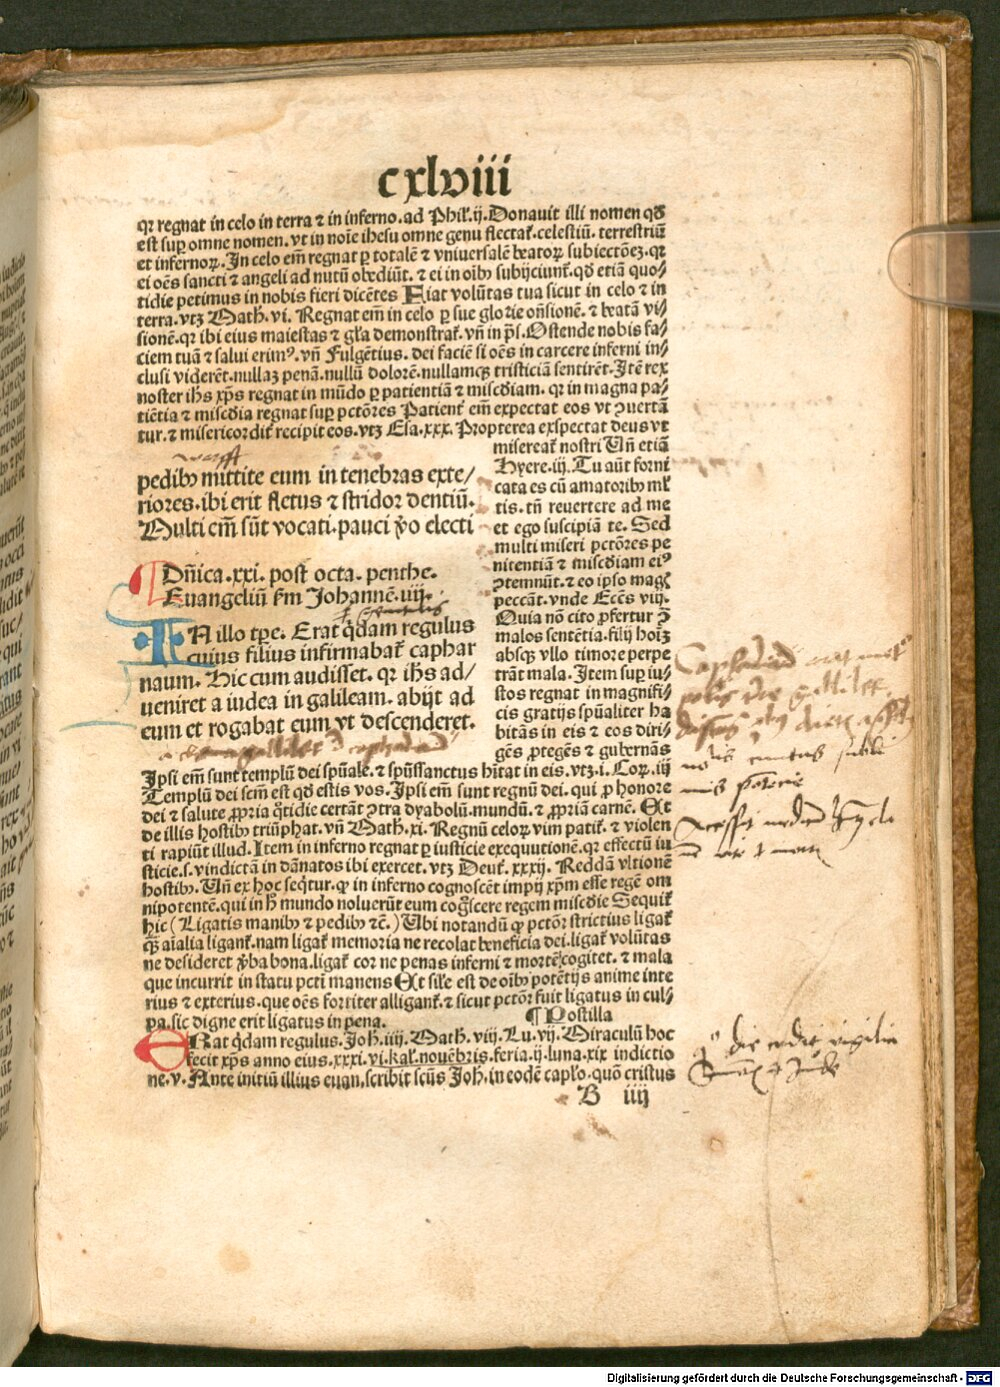 cxlviii
qꝛ regnat in celo in terra ⁊ in inferno. ad Phil. ij. Donauit illi nomen qđ
est suꝑ omne nomen. vt in noīe ihesu omne genu flectat̄. celestiū. terrestriū
et infernoꝝ. In celo em̄ regnat ꝑ totalē ⁊ vniuersalē beatoꝝ subiectōeꝫ. qꝛ
ei oēs sancti ⁊ angeli ad nutū obediūt. ⁊ ei in oībꝰ subijciunt̄. qđ etiā quo⸗
tidie petimus in nobis fieri dicētes Fiat volūtas tua sicut in celo ⁊ in
terra. vtꝫ Math. vi. Regnat em̄ in celo ꝑ sue glorie on̄sionē. ⁊ beatā vi⸗
sionē. qꝛ ibi eius maiestas ⁊ gl̄a demonstrat̄. vn̄ in p̄s. Ostende nobis fa⸗
ciem tuā ⁊ salui erimꝰ. vn̄ Fulgētius. dei faciē si oēs in carcere inferni in⸗
clusi viderēt. nullaꝫ penā. nullū dolorē. nullamqꝫ tristiciā sentirēt. Itē rex
noster ihs xp̄s regnat in mūdo ꝑ patientiā ⁊ miscđiam. qꝛ in magna pa⸗
tiētia ⁊ miscđia regnat suꝑ pctōres Patient̄ em̄ expectat eos vt ꝯuertā
tur. ⁊ misericordit̄ recipit eos. vtꝫ Esa. xxx. Propterea exspectat deus vt
misereat̄ nostri Vn̄ etiā
Hyere. iij. Tu aūt forni
cata es cū amatoribꝰ ml̄
tis. tn̄ reuertere ad me
et ego suscipiā te. Sed
multi miseri pctōres pe
nitentiā ⁊ miscđiam eiꝰ
ꝯtemnūt. ⁊ eo ipso maḡ
peccāt. vnde Eccēs viij.
Quia nō cito ꝓfertur ꝯ̄
malos sentētia. filij hoīꝫ
absqꝫ vllo timore perpe
trāt mala. Item suꝑ iu⸗
stos regnat in magnifi⸗
cis gratijs spūaliter ha
bitās in eis ⁊ eos diri⸗
gēs ꝓtegēs ⁊ gubernās
pedibꝰ mittite eum in tenebras exte⸗
riores. ibi erit fletus ⁊ stridor dentiū.
Multi em̄ sūt vocati. pauci v̄o electi
Dn̄ica. xxi. post octa. penthe.
Euangeliū s̄m Johannē. iiij.
IN illo tp̄e. Erat q̄dam regulus
cuius filius infirmabat̄ caphar
naum. Hic cum audisset. qꝛ ihs ad⸗
ueniret a iudea in galileam. abijt ad
eum et rogabat eum vt descenderet.
Ipsi em̄ sunt templū dei spūale. ⁊ spūssanctus hītat in eis. vtꝫ. i. Coꝝ. iij
Templū dei scm̄ est qđ estis vos. Ipsi em̄ sunt regnū dei. qui ꝓ honore
dei ⁊ salute ꝓpria q̄tidie certāt ꝯtra dyabolū. mundū. ⁊ ꝓpriā carnē. Et
de illis hostibꝰ triūphat. vn̄ Math. xi. Regnū celoꝝ vim patit̄. ⁊ violen
ti rapiūt illud. Item in inferno regnat ꝑ iusticie exequutionē. qꝛ effectū iu
sticie. s. vindictā in dānatos ibi exercet. vtꝫ Deut̄. xxxij. Reddā vltionē
hostibꝰ. Vn̄ ex hoc seq̄tur. ꝙ in inferno cognoscēt impij xp̄m esse regē om
nipotentē. qui in h̄ mundo noluerūt eum coḡscere regem miscđie Sequit̄
hic (Ligatis manibꝰ ⁊ pedibꝰ ⁊c̄.) Vbi notandū ꝙ pctōr strictius ligat̄
q̄ aīalia ligant̄. nam ligat̄ memoria ne recolat beneficia dei. ligat̄ volūtas
ne desideret v̄ba bona. ligat̄ cor ne penas inferni ⁊ mortē cogitet. ⁊ mala
que incurrit in statu pcti manens Et sil̄e est de oībꝰ potētijs anime inte
rius ⁊ exterius. que oēs fortiter alligant̄. ⁊ sicut pctōr fuit ligatus in cul⸗
pa. sic digne erit ligatus in pena. ¶ Postilla
ERat q̄dam regulus. Joh. iiij. Math. viij. Lu. vij. Miraculū hoc
fecit xp̄s anno eius. xxxi. vi. kal̄. nouēbris. feria. ij. luna. xix indictio
ne. v. Ante initiū illius euan. scribit scūs Joh. in eodē caplo. quō cristus
B iiij
Digitalisierung gefördert durch die Deutsche Forschungsgemeinschaft - DFG